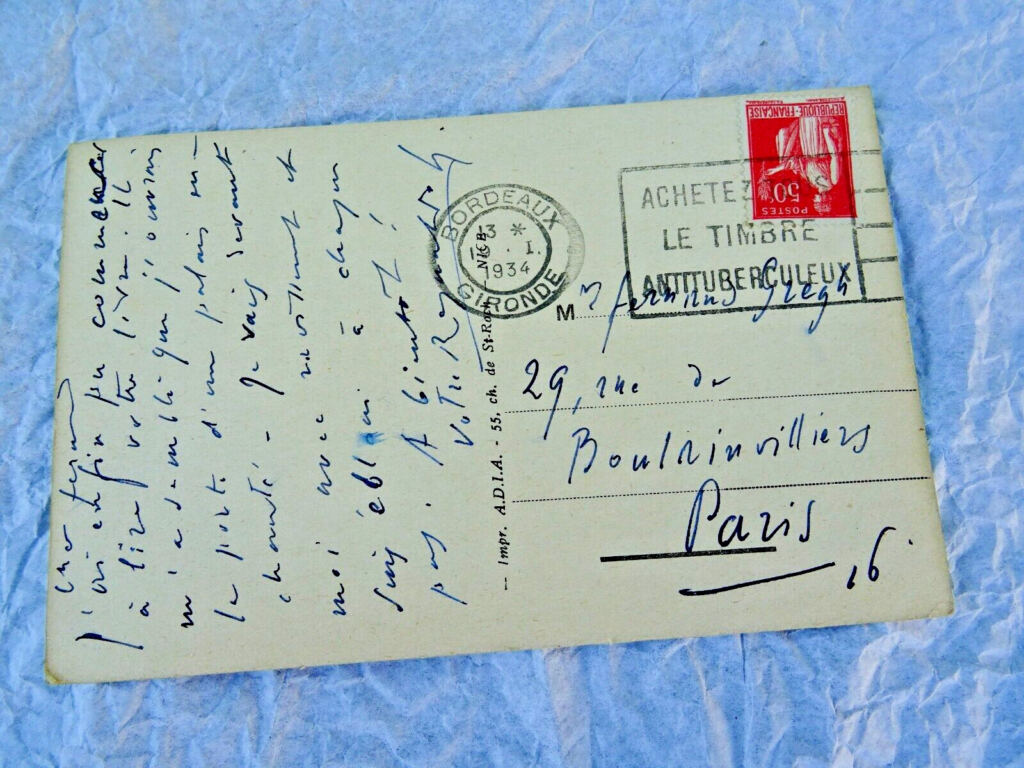 cher Fernand
j'ai enfin pu commencer
à lire votre livre. Il
m'a semblé que j'ouvrais
la porte d'un palais en-
chanté - Je vais devant
moi avec ravissement et
suis ébloui à chaque
pas. A bientôt!
Votre
— Impr. A.D.I.A. - 55, ch. de St-Roch NICE
BORDEAUX
1934
GIRONDE
ACHETEZ
LE TIMBRE
ANTITUBERCULEUX
REPUBLIQUE-FRANCAISE
50c
POSTES
Mr Fernand Gregh
29, rue de
Boulainvilliers
Paris
16